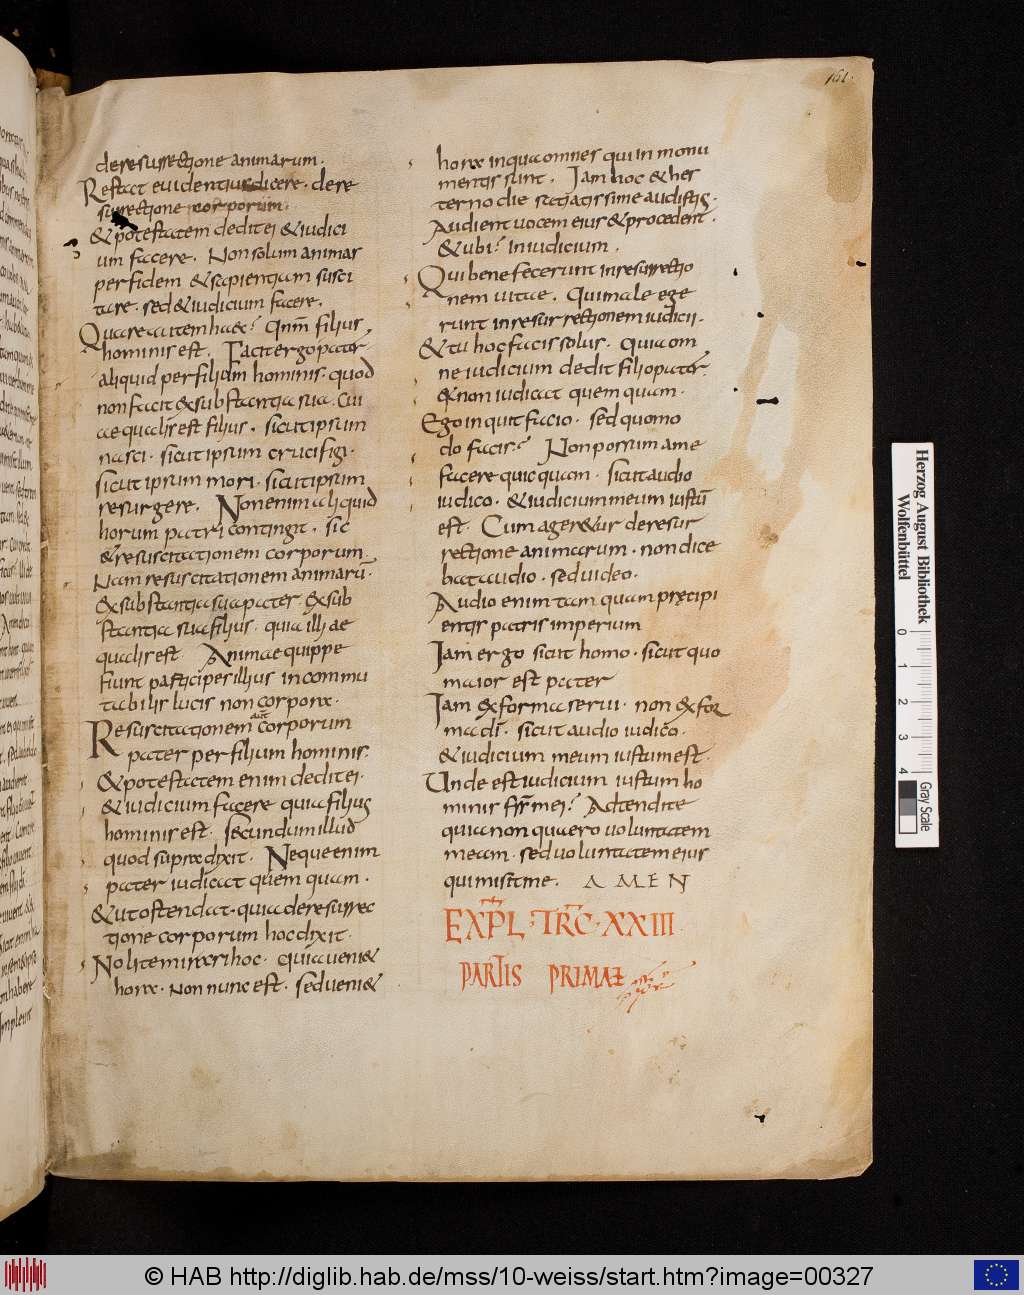 161
de resurrectione animarum.
Restat euidentius dicere. de re
surrectione corporum.
& potestatem dedit ei & iudici
um facere. Non solum animas
per fidem & sapientiam susci
tare. sed & iudicium facere.
Quare autem haec? Qnm filius
hominis est. Facit ergo pater
aliquid per filium hominis. quod
non facit ex substantia sua. cui
aequalis est filius. sicut ipsum
nasci. sicut ipsum crucifigi.
sicut ipsum mori. sicut ipsum
resurgere. Non enim aliquid
horum patri contingit. sic
& resuscitationem corporum.
Nam resuscitationem animarū.
ex substantia sua pater. ex sub
stantia sua filius. quia illi ae
qualis est. Animae quippe
fiunt participes illius incommu
tabilis lucis non corpora.
Resuscitationem aut corporum
pater per filium hominis.
& potestatem enim dedit ei.
& iudicium facere quia filius
hominis est. secundum illud
quod supra dixit. Neque enim
pater iudicat quem quam.
& ut ostendat. quia de resurrec
tione corporum hoc dixit.
Nolite mirari hoc. quia ueni&
hora. Non nunc est. sed ueni&
hora in qua omnes qui in monu
mentis sunt. Iam hoc & hes
terno die satiatissime audistis.
Audient uocem eius & procedent.
& ubi? in iudicium.
Qui bene fecerunt in resurrectio
nem uitae. Qui male ege
runt in resurrectionem iudicii.
& tu hoc facis solus. quia om
ne iudicium dedit filio pater.
& non iudicat quem quam.
Ego inquit facio. sed quomo
do facis? Non possum a me
facere quic quam. sicut audio
iudico. & iudicium meum iustū
est. Cum ager&ur de resur
rectione animarum. non dice
bat audio. sed uideo.
Audio enim tam quam precipi
entis patris imperium
Iam ergo sicut homo. sicut quo
maior est pater
Iam ex forma serui. non ex for
ma dī. sicut audio iudico.
& iudicium meum iustum est.
Unde est iudicium iustum ho
minis frr mei? Adtendite
quia non quaero uoluntatem
meam. sed uoluntatem eius
qui misit me. AMEN
EXPL. TRC. XXIII
PARTIS PRIMAE
Herzog August Bibliothek
Wolfenbüttel
0 1 2 3 4
Gray Scale
© HAB http://diglib.hab.de/mss/10-weiss/start.htm?image=00327